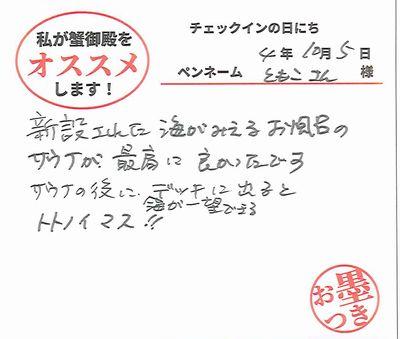 私が蟹御殿を
オススメ
します！
チェックインの日にち
4年10月5日
ペンネーム ともこさん 様
新設された海がみえるお風呂の
サウナが最高に良かったです
サウナの後に、デッキに出ると
海が一望できる
トトノイマス!!
お墨つき